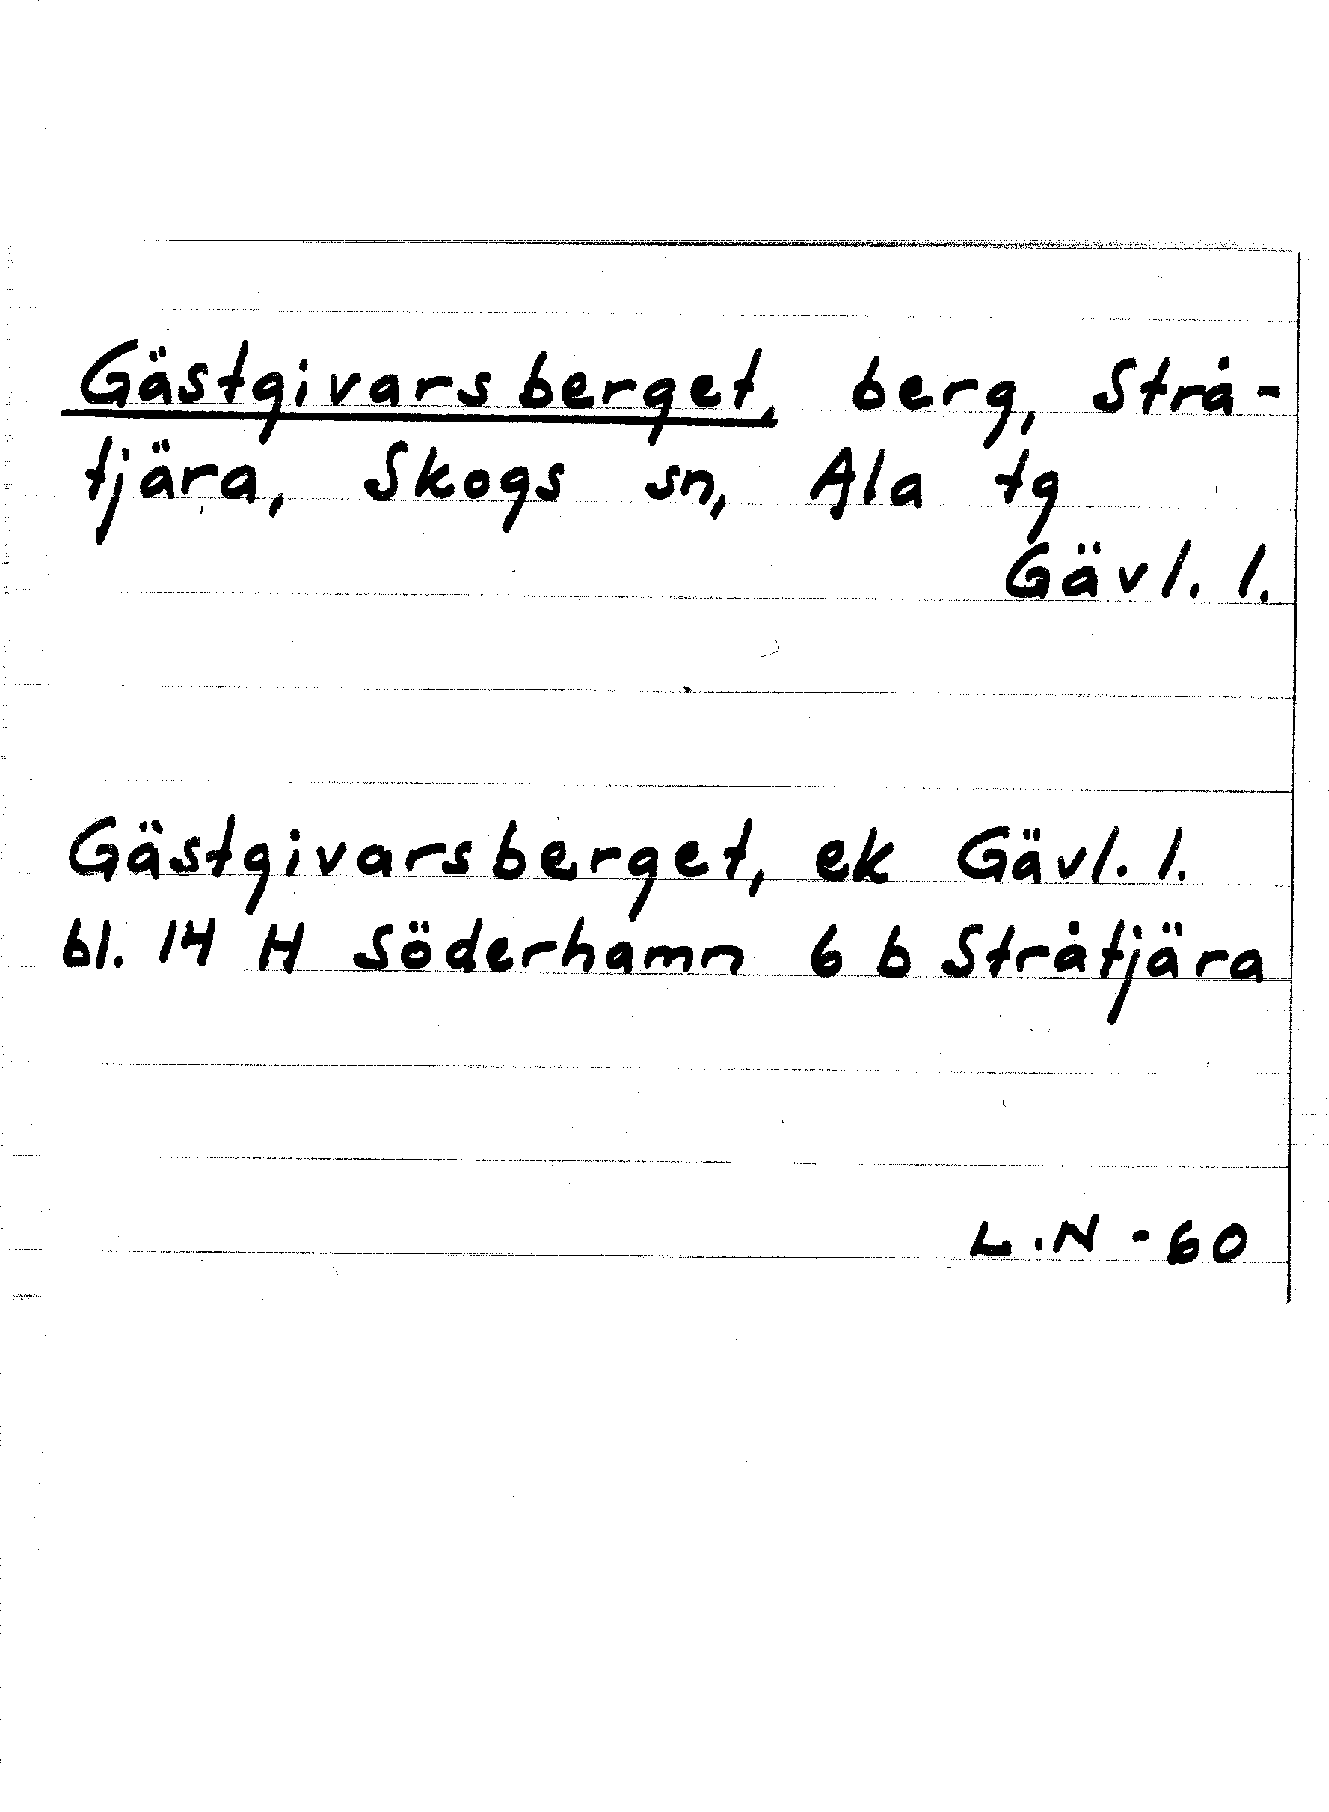 Gästgivarsberget, berg, Strå-
tjära, Skogs sn, Ala tg
Gävl. l.
Gästgivarsberget, ek Gävl. l.
bl. 14 H Söderhamn 6 b Stråtjära
L.N - 60